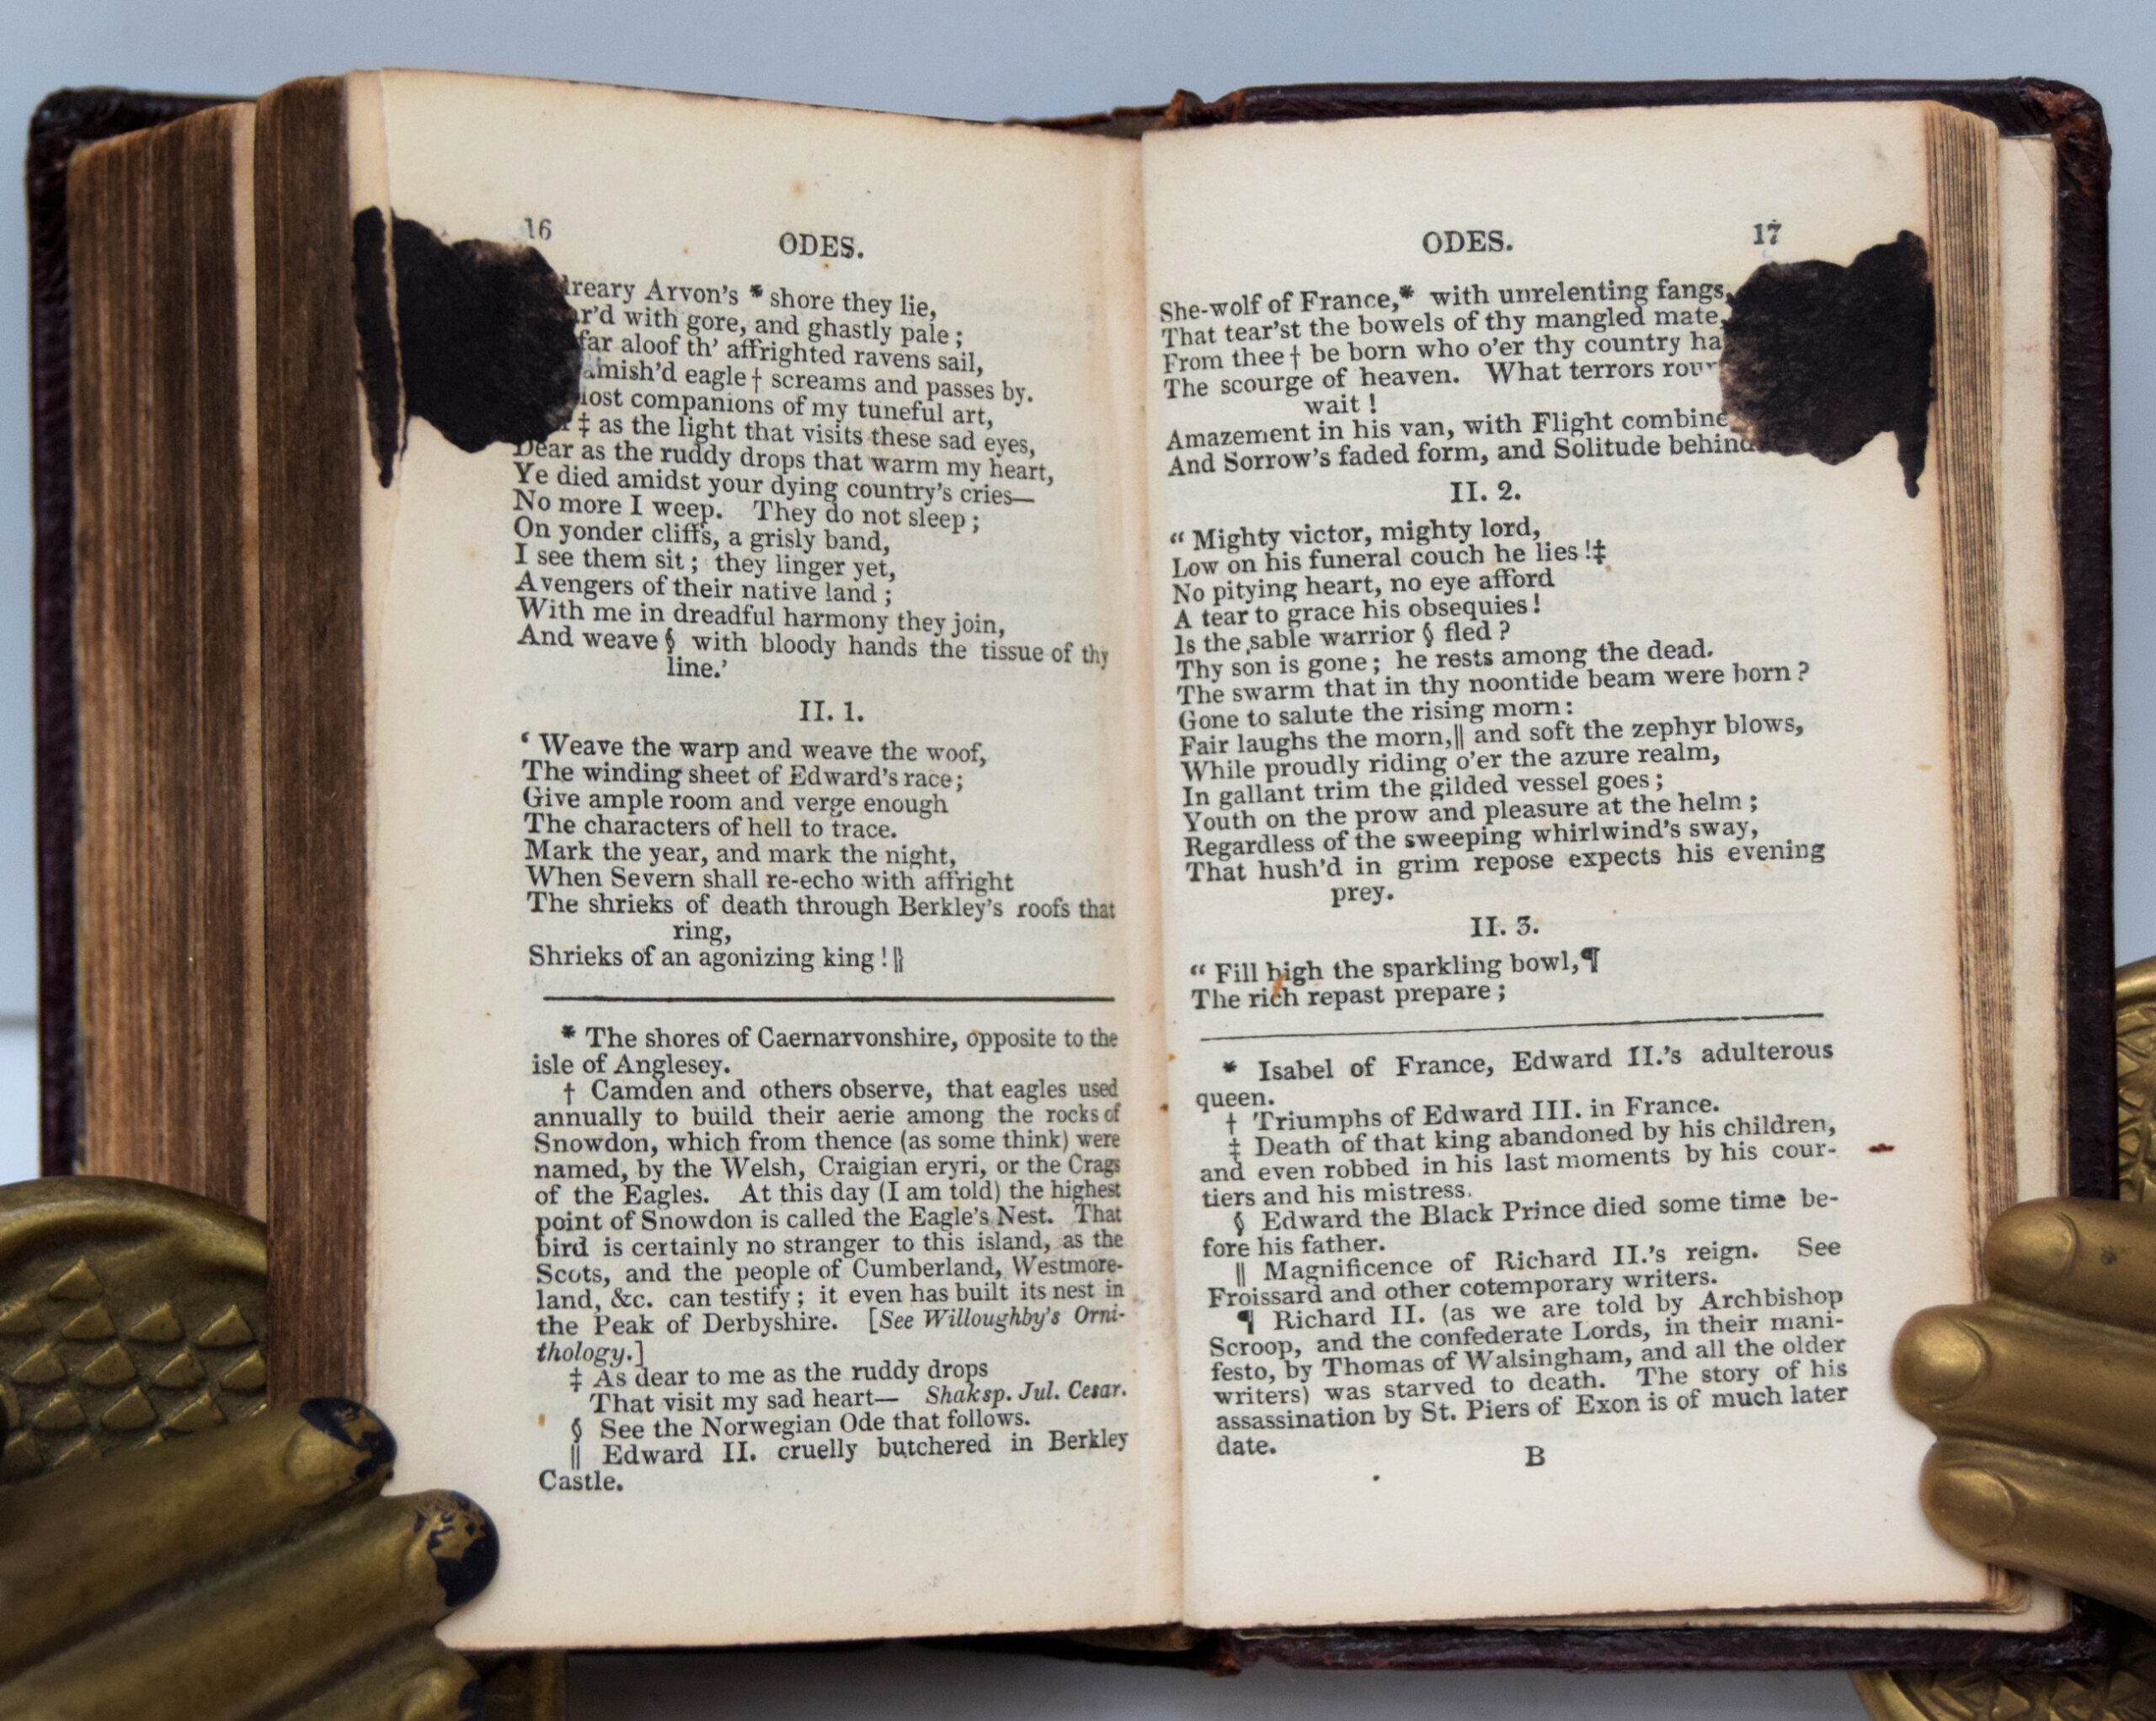 16
ODES.
Arvon's * shore they lie,
with gore, and ghastly pale ;
far aloof th' affrighted ravens sail,
eagle † screams and passes by.
lost companions of my tuneful art,
‡ as the light that visits these sad eyes,
Dear as the ruddy drops that warm my heart,
Ye died amidst your dying country's cries—
No more I weep. They do not sleep ;
On yonder cliffs, a grisly band,
I see them sit ; they linger yet,
Avengers of their native land ;
With me in dreadful harmony they join,
And weave § with bloody hands the tissue of thy
line.'
II. 1.
‘ Weave the warp and weave the woof,
The winding sheet of Edward's race ;
Give ample room and verge enough
The characters of hell to trace.
Mark the year, and mark the night,
When Severn shall re-echo with affright
The shrieks of death through Berkley's roofs that
ring,
Shrieks of an agonizing king ! ||
* The shores of Caernarvonshire, opposite to the
isle of Anglesey.
† Camden and others observe, that eagles used
annually to build their aerie among the rocks of
Snowdon, which from thence (as some think) were
named, by the Welsh, Craigian eryri, or the Crags
of the Eagles. At this day (I am told) the highest
point of Snowdon is called the Eagle's Nest. That
bird is certainly no stranger to this island, as the
Scots, and the people of Cumberland, Westmore-
land, &c. can testify ; it even has built its nest in
the Peak of Derbyshire. [See Willoughby's Orni-
thology.]
‡ As dear to me as the ruddy drops
That visit my sad heart— Shaksp. Jul. Cesar.
§ See the Norwegian Ode that follows.
|| Edward II. cruelly butchered in Berkley
Castle.
ODES.
17
She-wolf of France,* with unrelenting fangs,
That tear'st the bowels of thy mangled mate,
From thee † be born who o'er thy country
The scourge of heaven. What terrors
wait !
Amazement in his van, with Flight
And Sorrow's faded form, and Solitude behind
II. 2.
“ Mighty victor, mighty lord,
Low on his funeral couch he lies !‡
No pitying heart, no eye afford
A tear to grace his obsequies !
Is the sable warrior § fled ?
Thy son is gone ; he rests among the dead.
The swarm that in thy noontide beam were born ?
Gone to salute the rising morn :
Fair laughs the morn,|| and soft the zephyr blows,
While proudly riding o'er the azure realm,
In gallant trim the gilded vessel goes ;
Youth on the prow and pleasure at the helm ;
Regardless of the sweeping whirlwind's sway,
That hush'd in grim repose expects his evening
prey.
II. 3.
“ Fill high the sparkling bowl,¶
The rich repast prepare ;
* Isabel of France, Edward II.'s adulterous
queen.
† Triumphs of Edward III. in France.
‡ Death of that king abandoned by his children,
and even robbed in his last moments by his cour-
tiers and his mistress.
§ Edward the Black Prince died some time be-
fore his father.
|| Magnificence of Richard II.'s reign. See
Froissard and other cotemporary writers.
¶ Richard II. (as we are told by Archbishop
Scroop, and the confederate Lords, in their mani-
festo, by Thomas of Walsingham, and all the older
writers) was starved to death. The story of his
assassination by St. Piers of Exon is of much later
date.
B